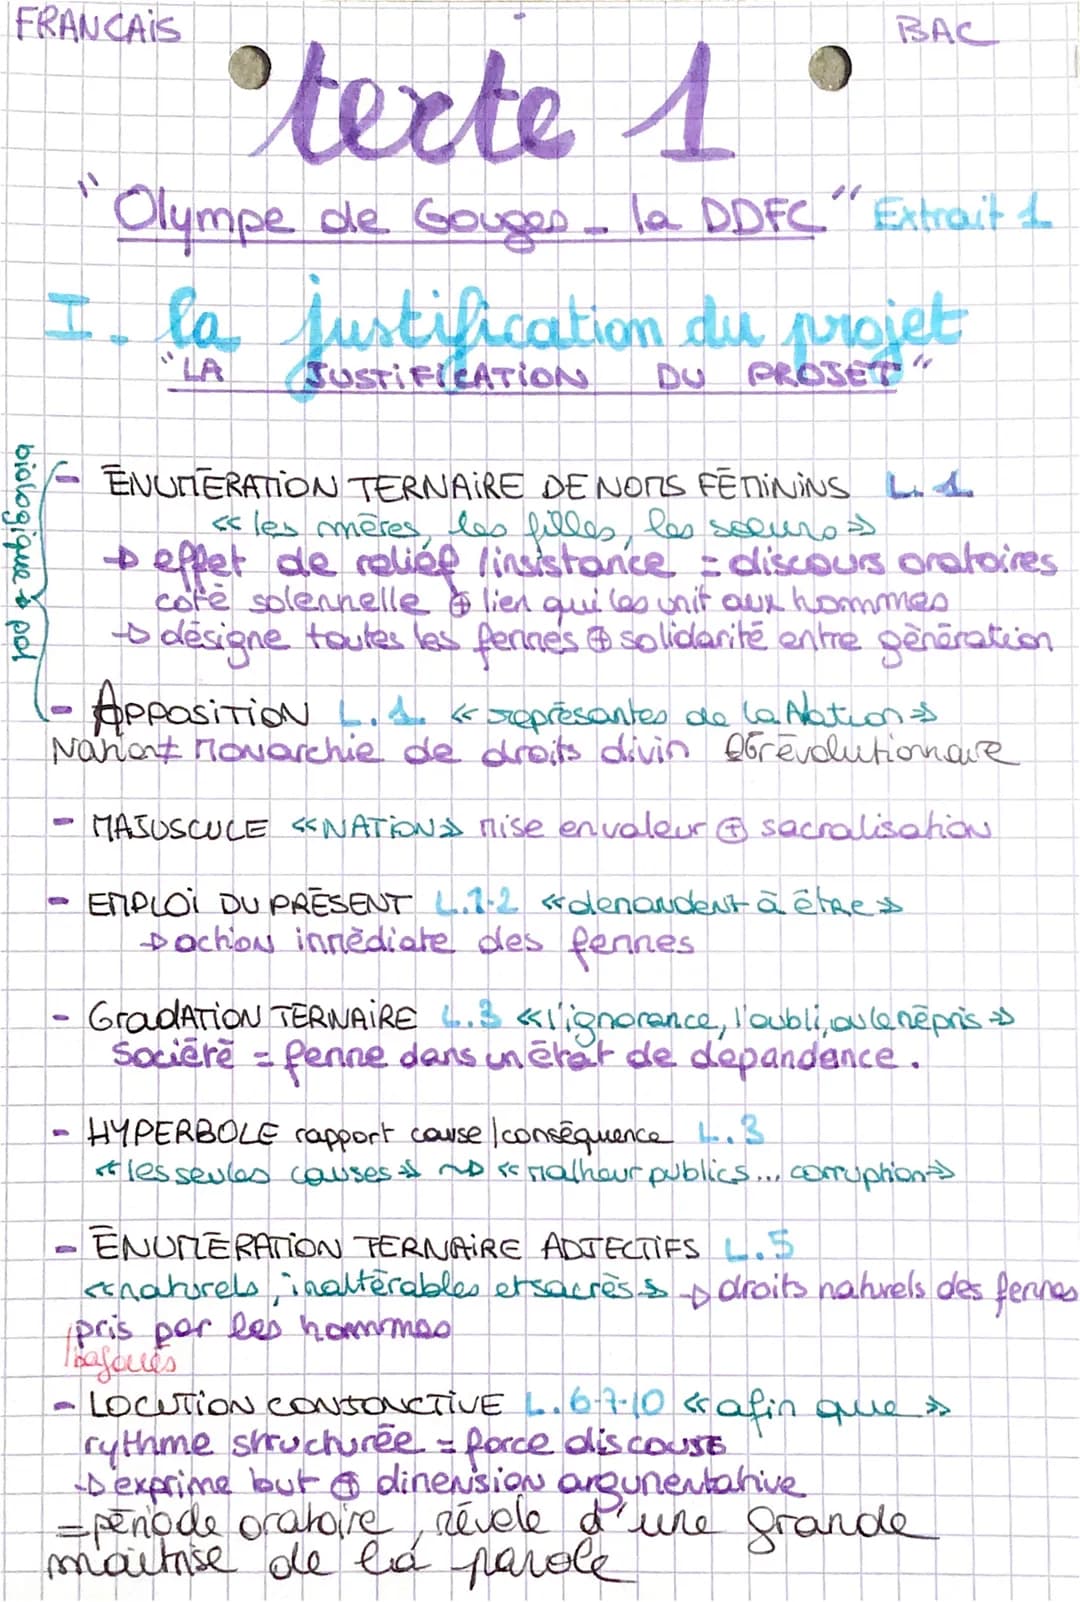 FRANCAIS
BAC
texte 1
"Olympe de Gouges - la DDFC" Extrait 1
I. la justification du projet
"LA JUSTIFICATION DU PROJET"
biologique → pol
- ÉNUMÉRATION TERNAIRE DE NOMS FÉMININS L.1
<< les mères, les filles, les soeurs >>
→ effet de relief / insistance = discours oratoires
coté solennelle ⊕ lien qui les unit aux hommes
→ désigne toutes les femmes ⊕ solidarité entre génération
- APPOSITION L.1. << représantes de la Nation >>
Nation ≠ Monarchie de droits divin révolutionnaire
- MAJUSCULE <<NATION>> mise en valeur ⊕ sacralisation
- EMPLOI DU PRÉSENT L.1-2 <<demandent à être>>
→ action immédiate des femmes
- GradATION TERNAIRE L.3 <<l'ignorance, l'oubli, ou le mépris>>
Société = femme dans un état de dépandance.
- HYPERBOLE rapport cause/conséquence L.3
<<les seules causes>> ~> <<malheur publics... corruption>>
- ÉNUMÉRATION TERNAIRE ADJECTIFS L.5
<<naturels, inaltérables et sacrés>> → droits naturels des femmes
pris par les hommmes
/bafoués
- LOCUTION CONJONCTIVE L.6-7-10 <<afin que>>
rythme structurée = force discours
→ exprime but ⊕ dimension argumentative
= période oratoire, révèle d'une grande
maitrise de la parole